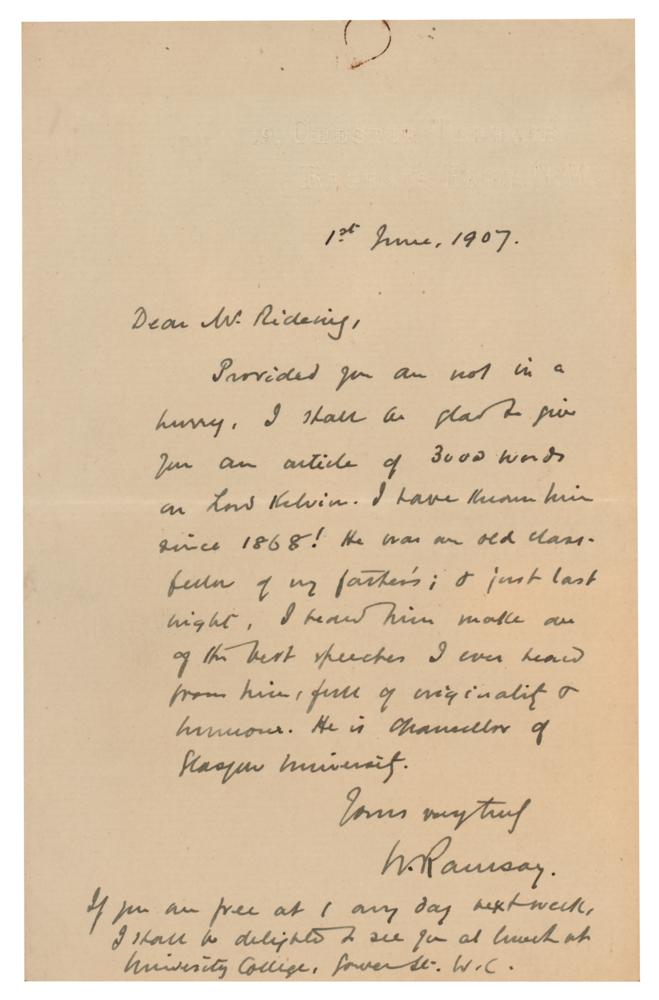 19, CHESTER TERRACE
REGENT'S PARK, N.W.
1st June, 1907.
Dear Mr. Rideing,
Provided you are not in a
hurry, I shall be glad to give
you an article of 3000 words
on Lord Kelvin. I have known him
since 1868! He was an old class-
fellow of my father's; & just last
night, I heard him make one
of the best speeches I ever heard
from him, full of originality &
humour. He is Chancellor of
Glasgow University.
Yours very truly
W. Ramsay.
If you are free at 1 any day next week,
I shall be delighted to see you at lunch at
University College, Gower St. W.C.